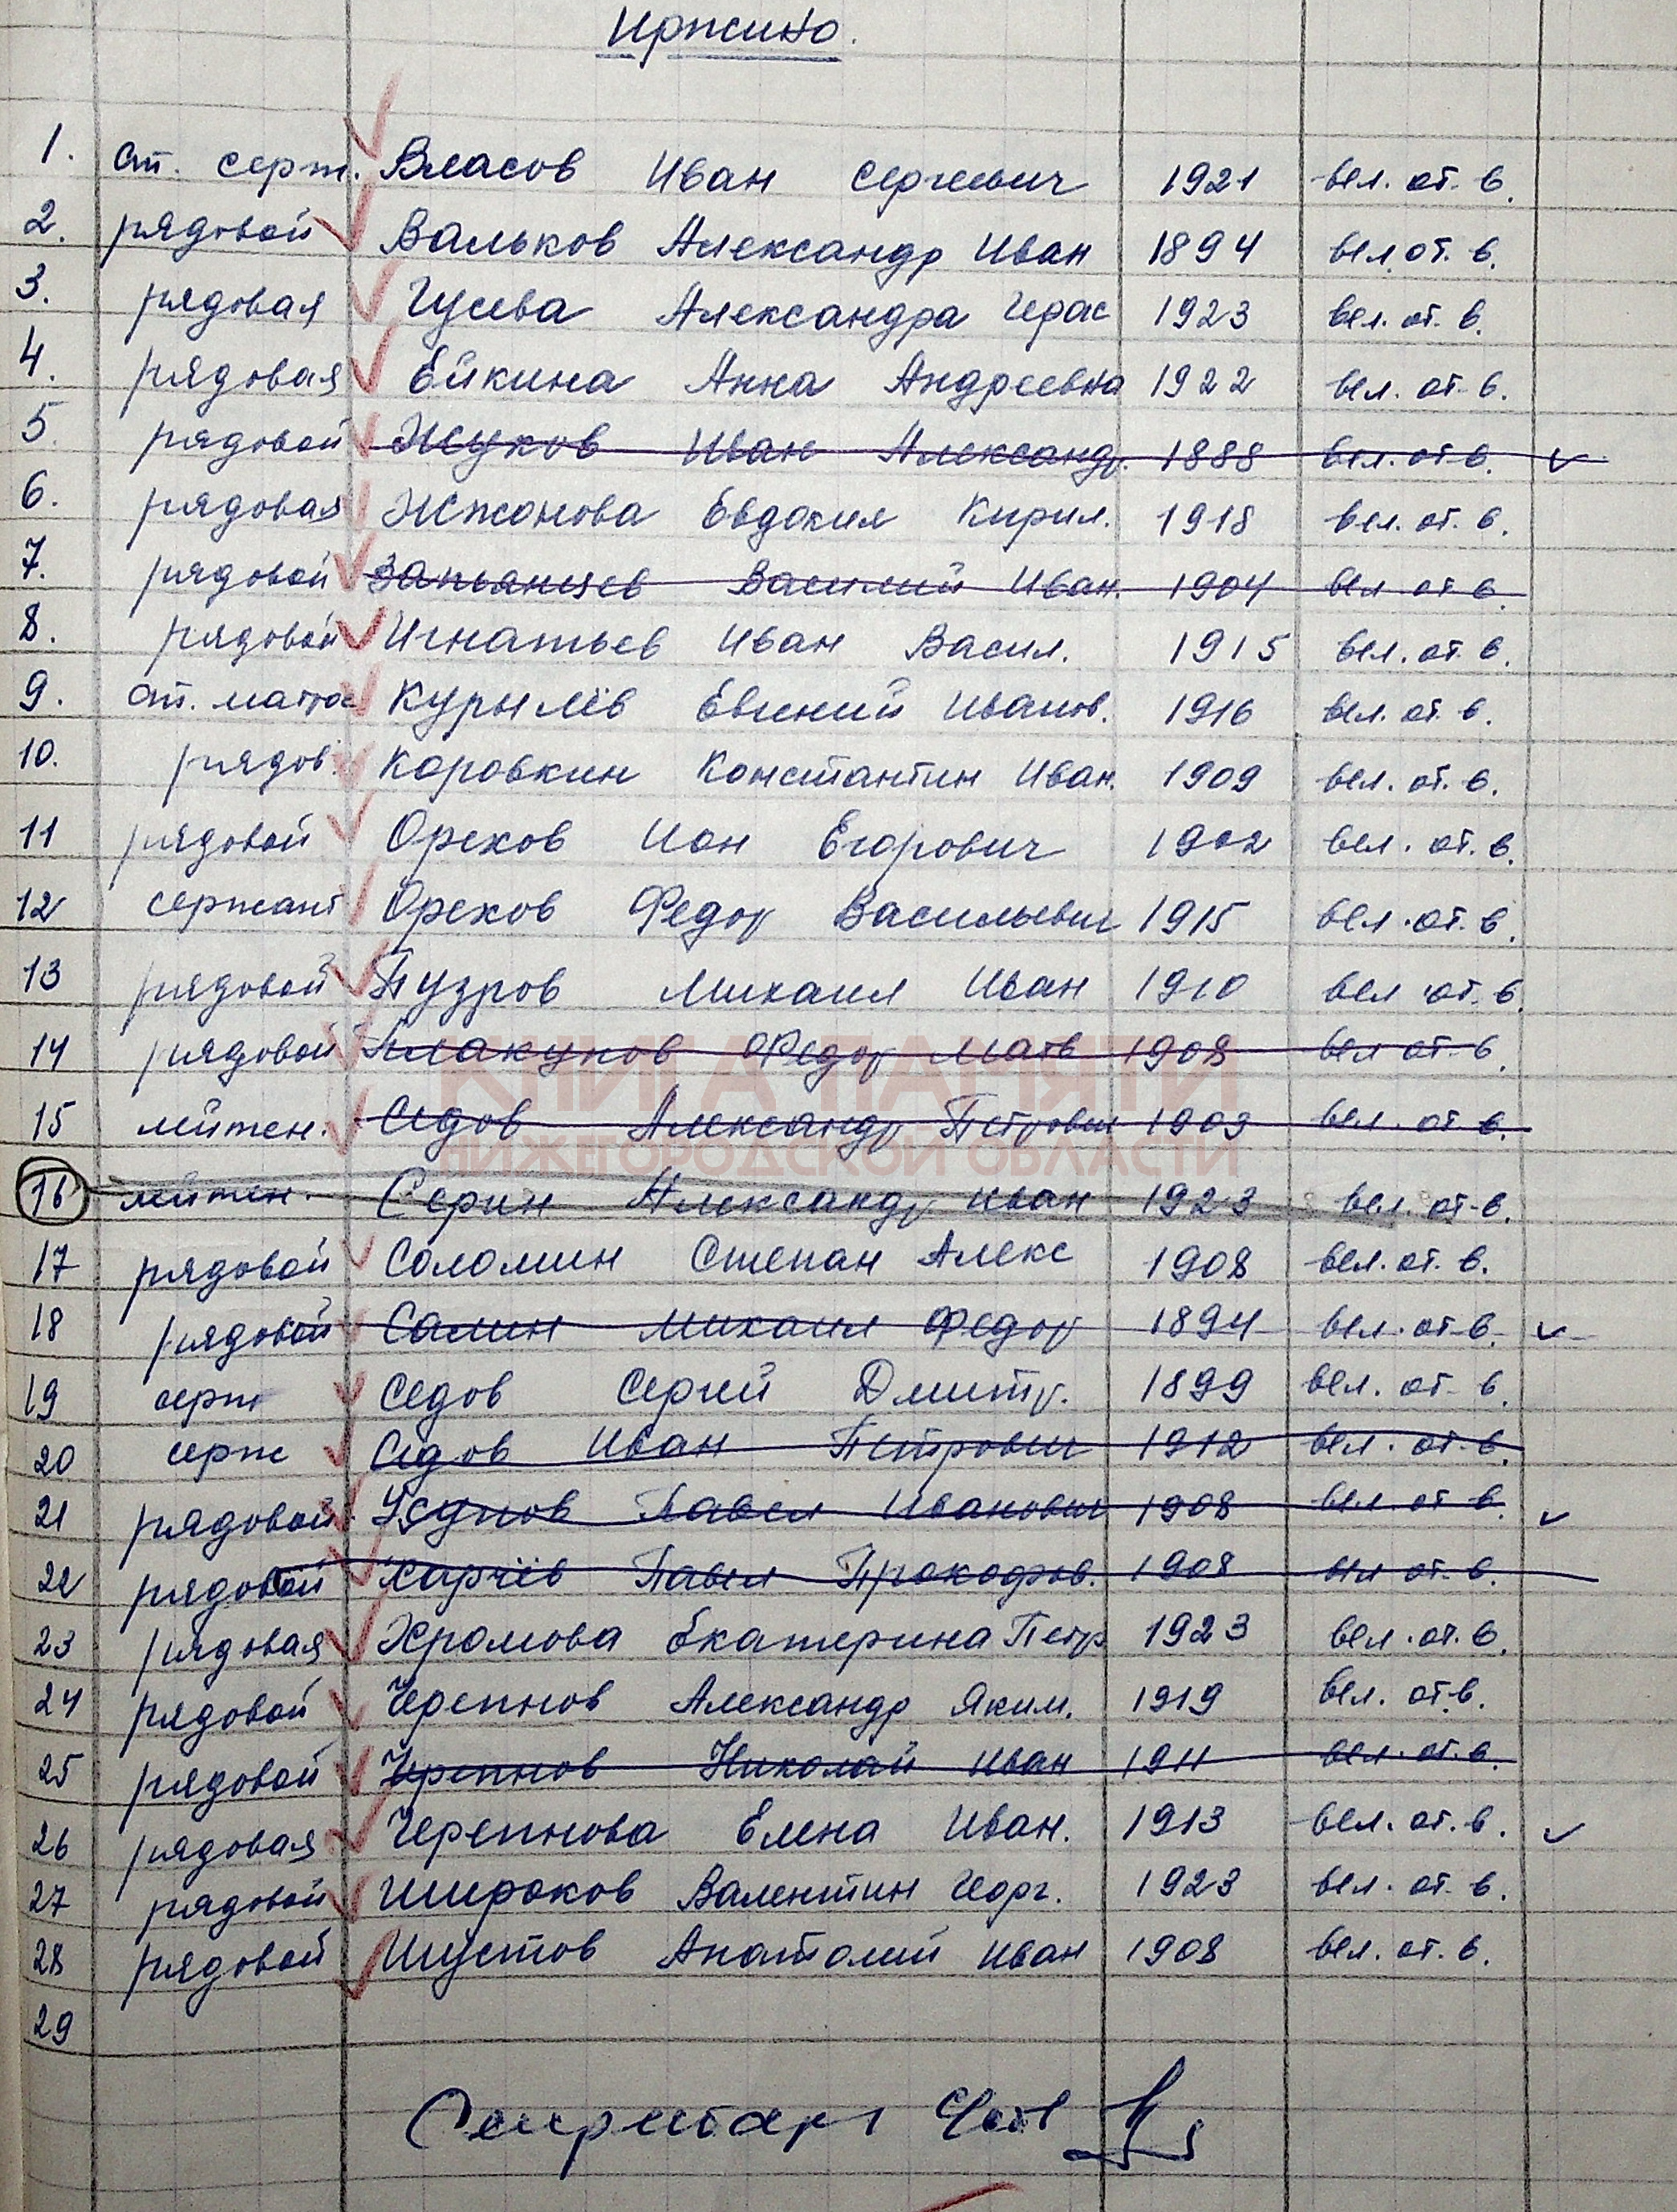 Иржино.
1. ст. серж. Власов Иван Сергеевич 1921 вел. от. в.
2. рядовой Вальков Александр Иван 1894 вел. от. в.
3. рядовая Гусева Александра Герас 1923 вел. от. в.
4. рядовая Ейкина Анна Андреевна 1922 вел. от. в.
5. рядовой Жуков Иван Александр. 1888 вел. от. в.
6. рядовая Жижонова Евдокия Кирил. 1918 вел. от. в.
7. рядовой Запьянцев Василий Иван. 1904 вел от в.
8. рядовой Игнатьев Иван Васил. 1915 вел. от. в.
9. ст. матрос Курылёв Евгений Иванов. 1916 вел. от. в.
10. рядов. Коровкин Константин Иван. 1909 вел. от. в.
11 рядовой Орехов Ион Егорович 1902 вел. от. в.
12 сержант Орехов Федор Васильевич 1915 вел. от. в.
13 рядовой Пузров Михаил Иван 1910 вел от. в
14 рядовой Плакунов Федор Матв 1908 вел от. в.
КНИГА ПАМЯТИ
15 лейтен. Седов Александр Петрович 1903 вел. от в.
НИЖЕГОРОДСКОЙ ОБЛАСТИ
16 лейтен. Серин Александр Иван 1923 вел. от. в.
17 рядовой Соломин Степан Алекс 1908 вел. от. в.
18 рядовой Салин Михаил Федор 1894 вел. от в.
19 серж Седов Сергей Дмитр. 1899 вел. от. в.
20 серж Седов Иван Петрович 1912 вел. от. в.
21 рядовой Павел Иванович 1908 вел. от в.
22 рядовой Харчёв Павел Прокофьев. 1908 вел от. в.
23 рядовая Хромова Екатерина Петр 1923 вел. от. в.
24 рядовой Черепнов Александр Яким. 1919 вел. от. в.
25 рядовой Черепнов Николай Иван 1911 вел. от. в.
26 рядовая Черепнова Елена Иван. 1913 вел. от. в.
27 рядовой Широков Валентин Георг. 1923 вел. от. в.
28 рядовой Шустов Анатолий Иван 1908 вел. от. в.
29
Секретарь